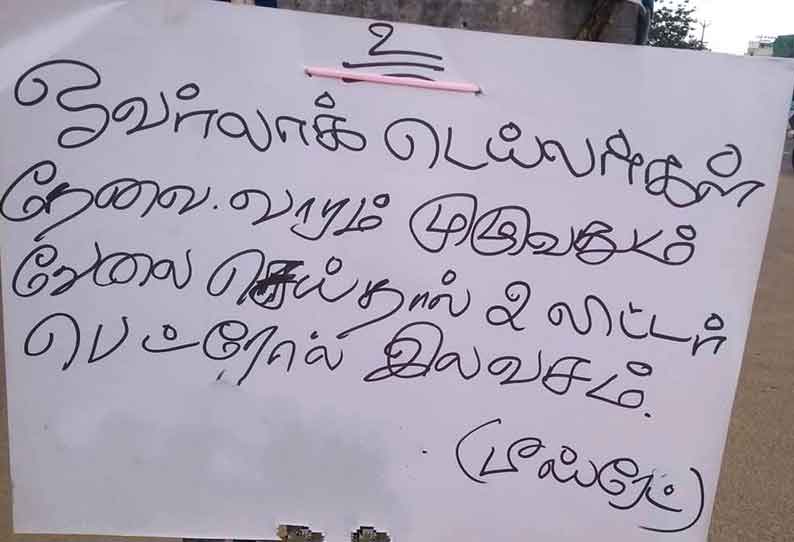 உ
ஓவர்லாக் டெய்லர்கள்
தேவை. வாரம் முழுவதும்
வேலை செய்தால் 2 லிட்டர்
பெட்ரோல் இலவசம்.
(பீஸ்ரேட்)